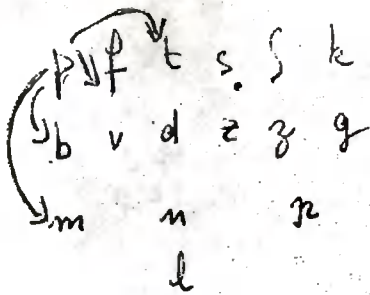 p f t s ʃ k
b v d z ʒ g
m n ɲ
l